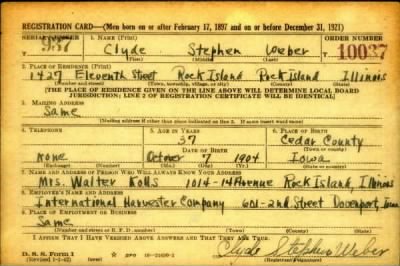 REGISTRATION CARD—(Men born on or after February 17, 1897 and on or before December 31, 1921)
SERIAL NUMBER 1. NAME (Print) ORDER NUMBER
Clyde Stephen Weber 10027
(First) (Middle) (Last)
2. PLACE OF RESIDENCE (Print)
1427 Eleventh Street Rock Island Rock Island Illinois
(Number and street) (Town, township, village, or city) (County) (State)
[THE PLACE OF RESIDENCE GIVEN ON THE LINE ABOVE WILL DETERMINE LOCAL BOARD
JURISDICTION; LINE 2 OF REGISTRATION CERTIFICATE WILL BE IDENTICAL]
3. MAILING ADDRESS
Same
[Mailing address if other than place indicated on line 2. If same insert word same]
4. TELEPHONE 5. AGE IN YEARS 6. PLACE OF BIRTH
37 Cedar County
DATE OF BIRTH (Town or county)
None October 7 1904 Iowa
(Exchange) (Number) (Mo.) (Day) (Yr.) (State or country)
7. NAME AND ADDRESS OF PERSON WHO WILL ALWAYS KNOW YOUR ADDRESS
Mrs. Walter Kolls 1014-14 Avenue Rock Island, Illinois
8. EMPLOYER'S NAME AND ADDRESS
International Harvester Company 601-2nd Street Davenport, Iowa
9. PLACE OF EMPLOYMENT OR BUSINESS
Same
(Number and street or R. F. D. number) (Town) (County) (State)
I AFFIRM THAT I HAVE VERIFIED ABOVE ANSWERS AND THAT THEY ARE TRUE.
D. S. S. Form 1
(Revised 1-1-42) GPO Clyde Stephen Weber